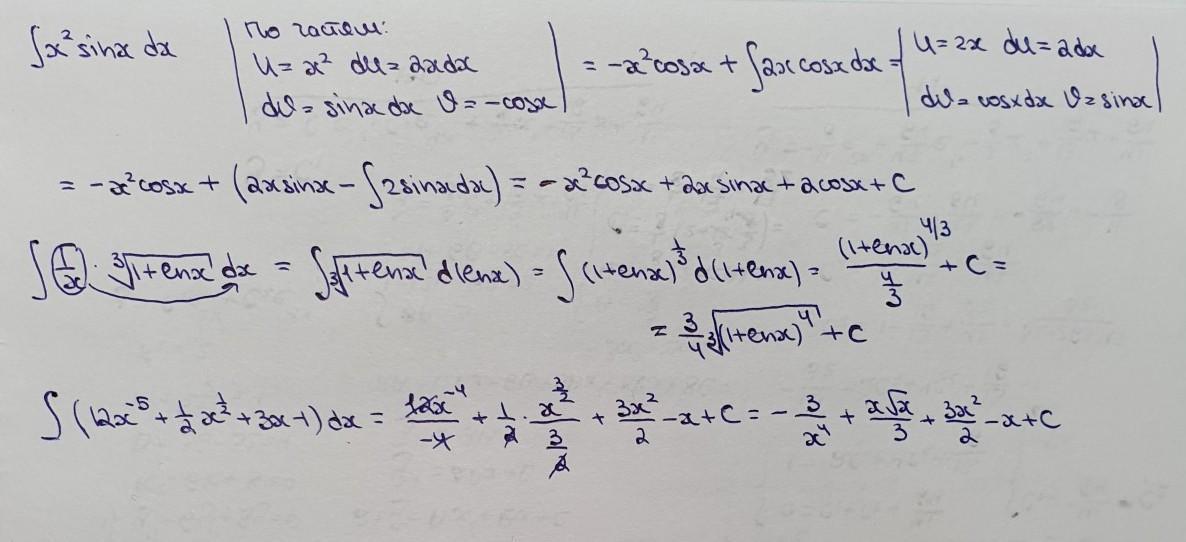 ∫x² sinx dx | По частям: u = x² du = 2xdx dv = sinx dx v = -cosx | = -x²cosx + ∫2x cosx dx = | u = 2x du = 2dx dv = cosxdx v = sinx |
= -x²cosx + (2xsinx - ∫2sinxdx) = -x²cosx + 2x sinx + 2cosx + C
∫(1/x) · ∛(1+lnx) dx = ∫∛(1+lnx) d(lnx) = ∫(1+lnx)^(1/3) d(1+lnx) = (1+lnx)^(4/3) / (4/3) + C =
= 3/4 ∛((1+lnx)⁴) + C
∫(12x⁻⁵ + 1/2 x^(1/2) + 3x - 1) dx = 12x⁻⁴/(-4) + 1/2 · x^(3/2)/(3/2) + 3x²/2 - x + C = -3/x⁴ + x√x/3 + 3x²/2 - x + C